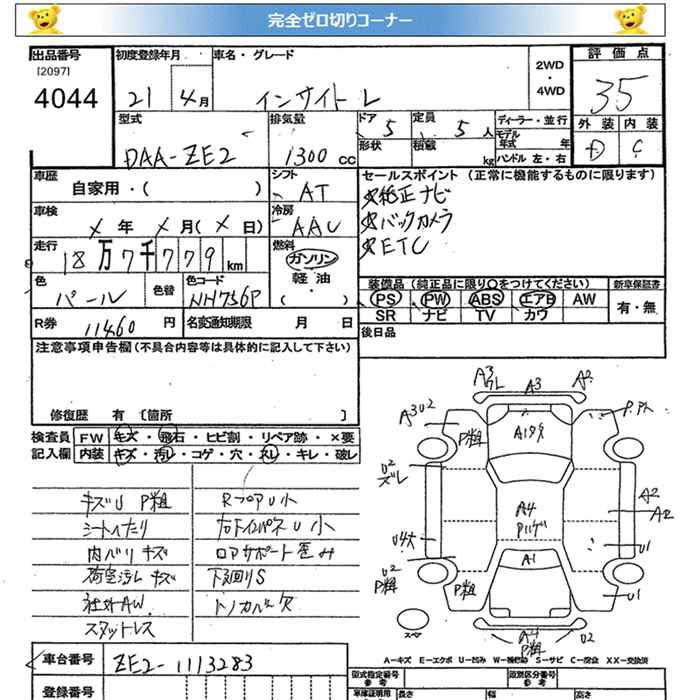 完全ゼロ切りコーナー
出品番号
[2097]
4044
初度登録年月
21 4月
車名・グレード
インサイト L
2WD
・
4WD
評価点
3.5
外装 内装
D C
型式
DAA-ZE2
排気量
1300 cc
ドア 5
形状
定員 5人
積載 kg
ディーラー・並行
モデル
年式 年
ハンドル 左・右
車歴
自家用・( )
シフト
AT
車検
× 年 × 月(× 日)
冷房
AAC
走行
18万7千779 km
燃料
ガソリン
・
軽油
・
( )
色
パール
色替
色コード
NH756P
R券 11460 円
名変通知期限 月 日
セールスポイント (正常に機能するものに限ります)
純正ナビ
バックカメラ
ETC
装備品(純正品に限り○をつけてください)
新車保証書
PS PW ABS エアB AW
SR ナビ TV カワ
有・無
後日品
注意事項申告欄(不具合内容等は具体的に記入して下さい)
修復歴 有 [箇所 ]
検査員
記入欄
FW キズ・飛石・ヒビ割・リペア跡・×要
内装 キズ・汚レ・コゲ・穴・スレ・キレ・破レ
キズU P粗
シートヘたり
内バリキズ
荷室汚レ キズ
社外AW
スタットレス
RフロアU小
右ドインパネU小
ロアサポート歪み
下廻りS
トノカバー欠
A3
A3
A2
A3U2
P粗
A1
P.
U2
ズレ
A4
A2
A2
U4大
U1
A1
U2
P粗
P粗
U1
A4
P粗
U2
スペア
A-キズ E-エクボ U-凹み W-補修跡 S-サビ C-腐食 XX-交換済
車台番号 ZE2-1113283
登録番号
型式指定番号
参考
類別区分番号
参考
車庫証明用
長さ 幅 高さ